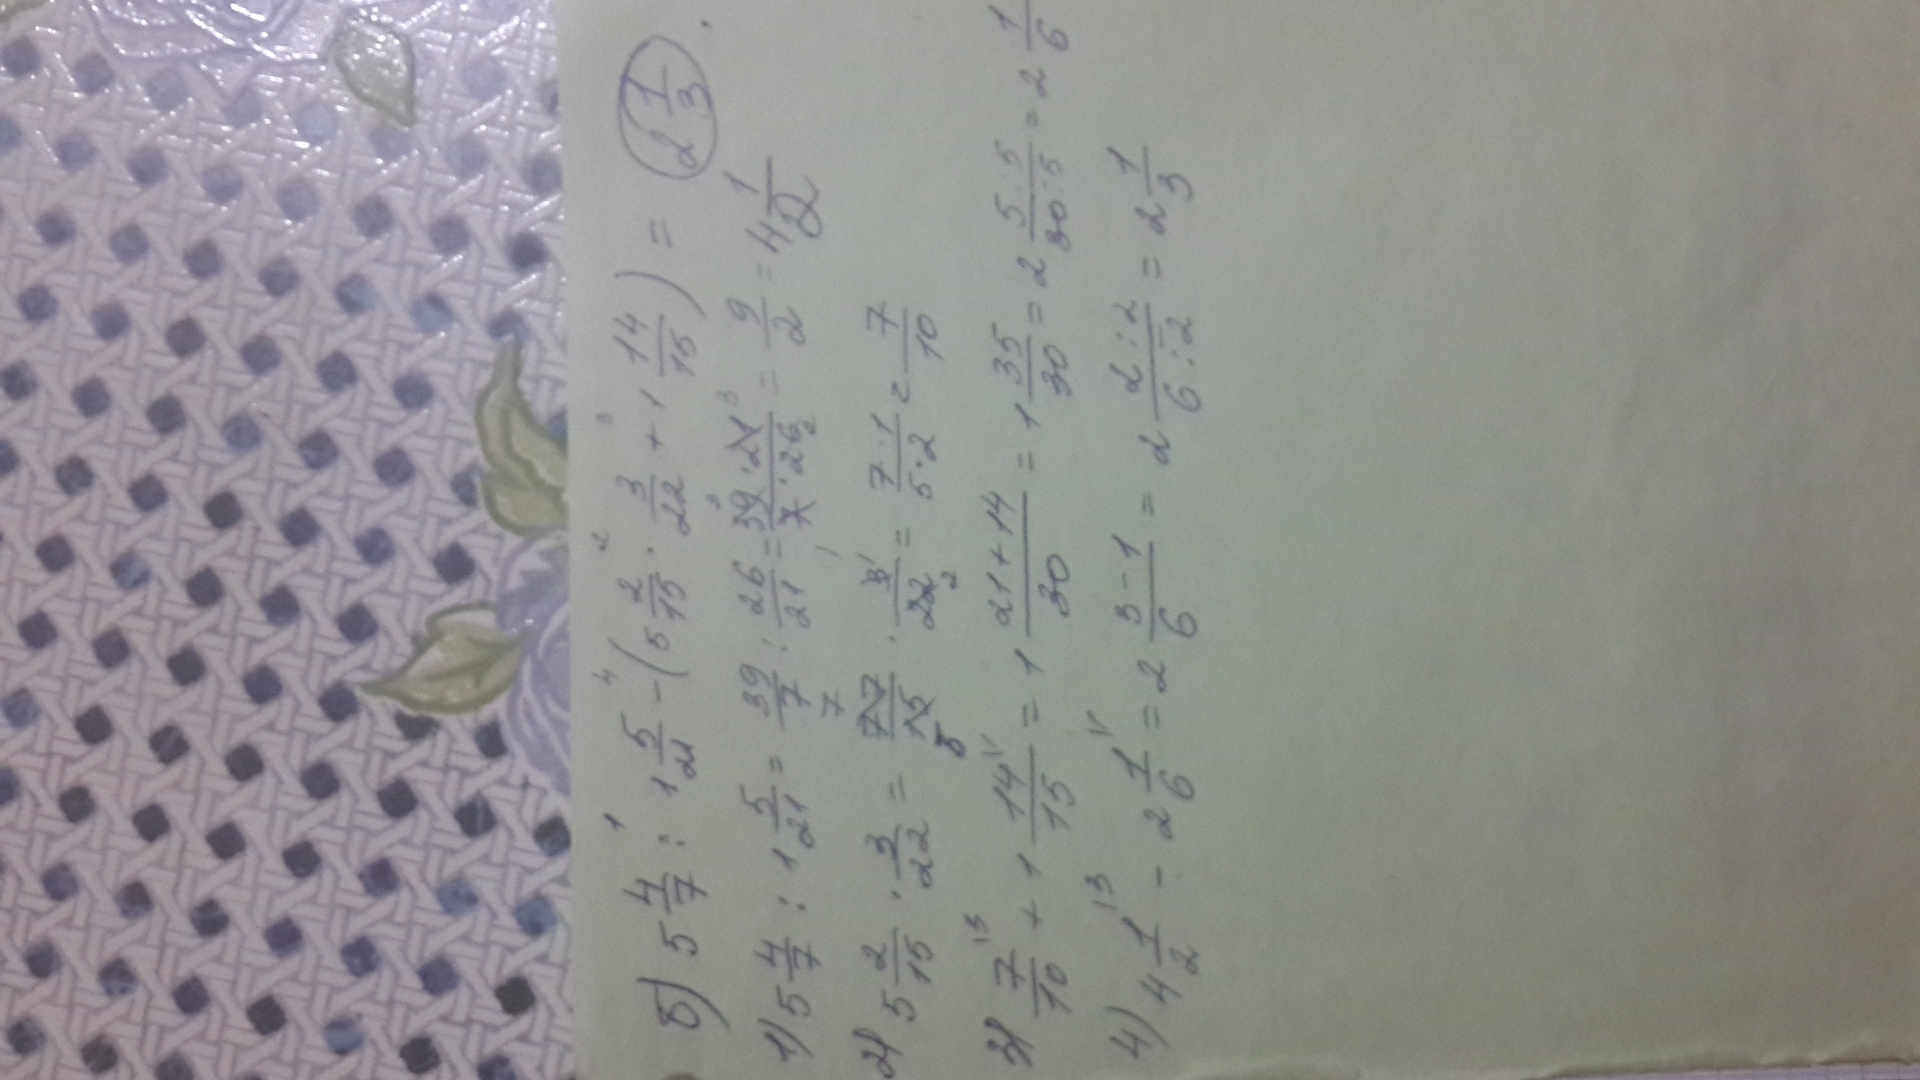 б) 5 4/7 : 1 5/21 - (5 2/15 · 3/22 + 1 14/15) = 2 1/3.
1) 5 4/7 : 1 5/21 = 39/7 : 26/21 = 39 · 21 / 7 · 26 = 9/2 = 4 1/2
2) 5 2/15 · 3/22 = 77/15 · 3/22 = 7·1/5·2 = 7/10
3) 7/10 + 1 14/15 = 1 21+14/30 = 1 35/30 = 2 5:5/30:5 = 2 1/6
4) 4 1/2 - 2 1/6 = 2 3-1/6 = 2 2:2/6:2 = 2 1/3